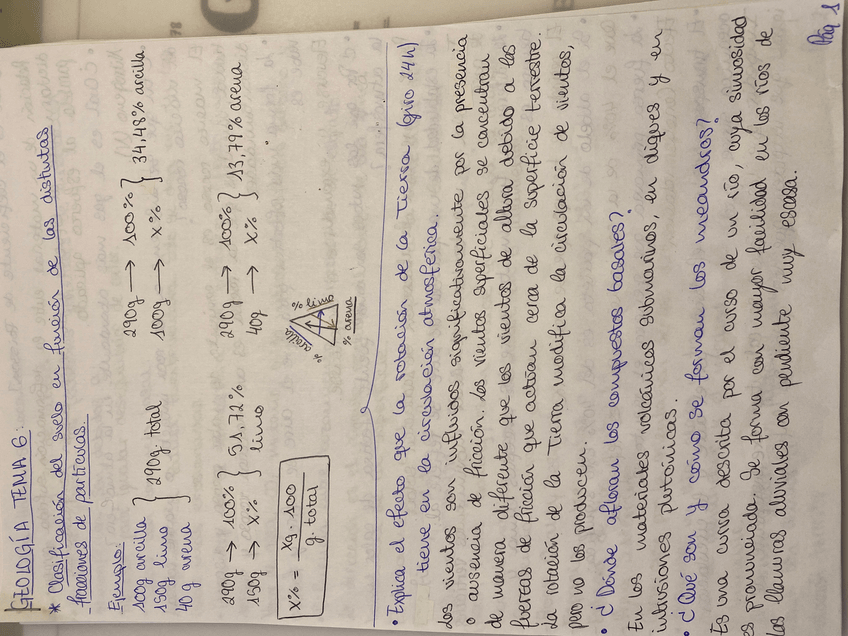 GEOLOGÍA TEMA 6:
* Clasificación del suelo en función de las distintas
fracciones de partículas.
Ejemplo:
100g arcilla
150g limo
40 g arena
} 290g total
290g → 100%
100g → x%
} 34,48% arcilla
290g → 100%
150g → x%
} 51,72% limo
290g → 100%
40g → x%
} 13,79% arena
x% = xg · 100 / g. total
% limo
% arcilla
% arena
• Explica el efecto que la rotación de la Tierra (giro 24h)
tiene en la circulación atmosférica.
Los vientos son influidos significativamente por la presencia
o ausencia de fricción. Los vientos superficiales se concentran
de manera diferente que los vientos de altura debido a las
fuerzas de fricción que actúan cerca de la superficie terrestre.
La rotación de la Tierra modifica la circulación de vientos,
pero no los producen.
• ¿Dónde afloran los compuestos basales?
En los materiales volcánicos submarinos, en diques y en
intrusiones plutónicas.
• ¿Qué son y cómo se forman los meandros?
Es una curva descrita por el curso de un río, cuya sinuosidad
es pronunciada. Se forma con mayor facilidad en los ríos de
las llanuras aluviales con pendiente muy escasa.
Pág 1